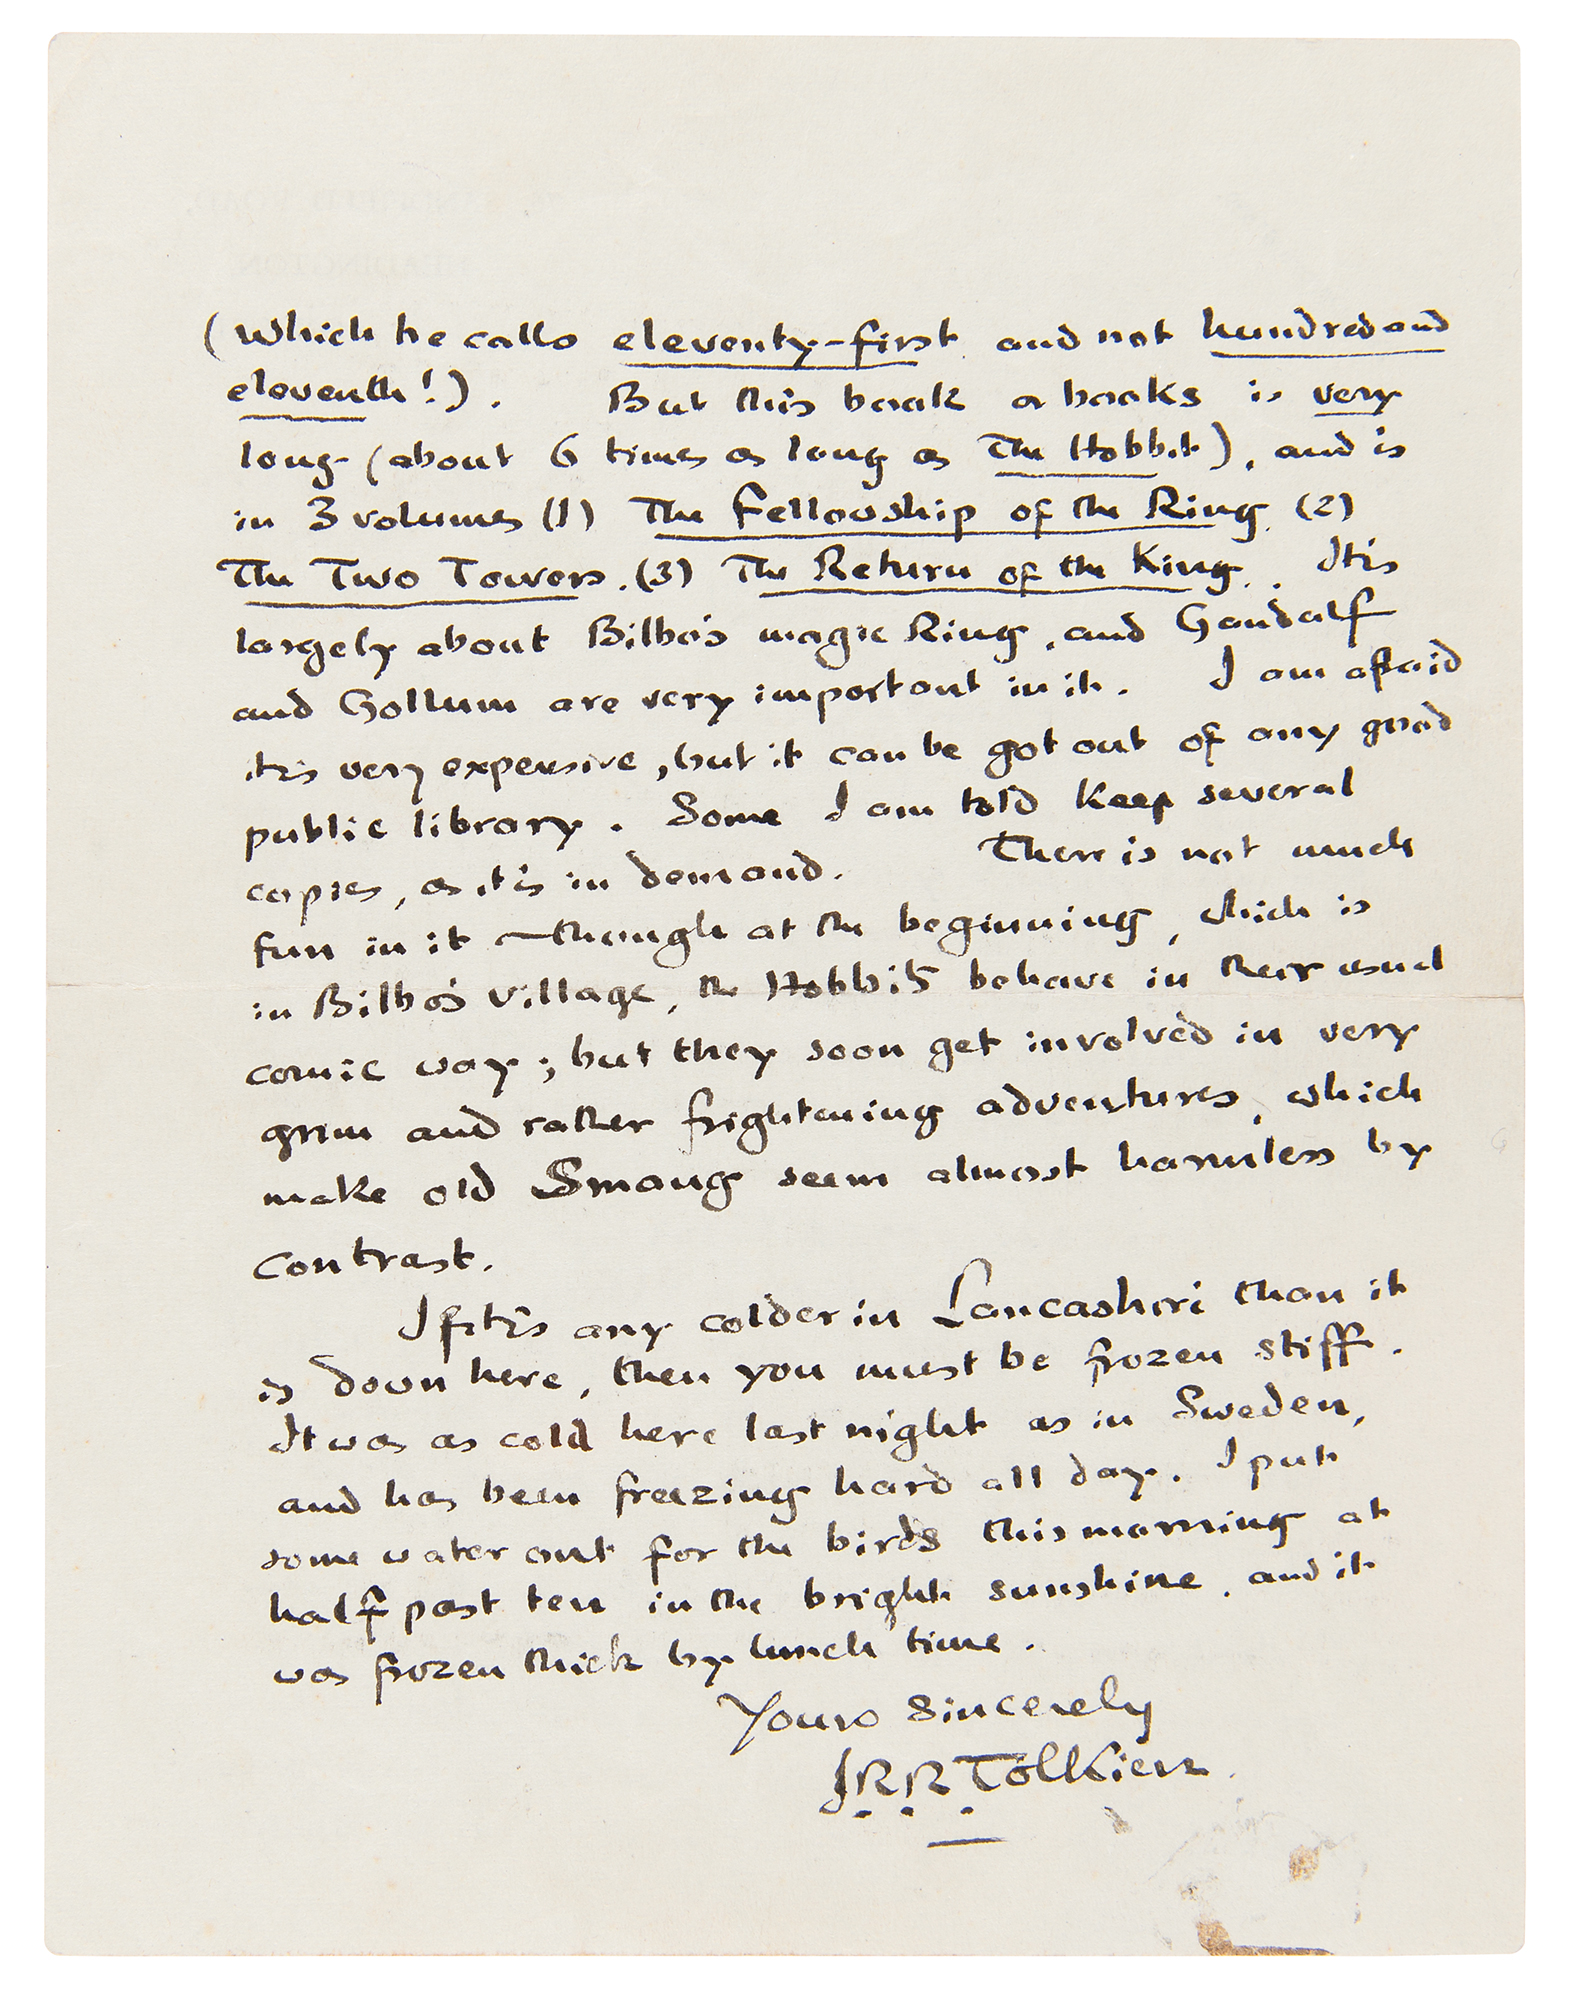 (which he calls eleventy-first and not hundred and
eleventh!). But this book or books is very
long (about 6 times as long as The Hobbit), and is
in 3 volumes (1) The Fellowship of the Ring (2)
The Two Towers. (3) The Return of the King. . It is
largely about Bilbo's magic Ring, and Gandalf
and Gollum are very important in it. I am afraid
it is very expensive, but it can be got out of any good
public library. Some I am told keep several
copies, as it is in demand. There is not much
fun in it — though at the beginning, which is
in Bilbo's village, the Hobbits behave in their usual
comic way; but they soon get involved in very
grim and rather frightening adventures, which
make old Smaug seem almost harmless by
contrast.
If it is any colder in Lancashire than it
is down here, then you must be frozen stiff.
It was as cold here last night as in Sweden,
and has been freezing hard all day. I put
some water out for the birds this morning at
half past ten in the bright sunshine, and it
was frozen thick by lunch time.
Yours sincerely
J.R.R. Tolkien.